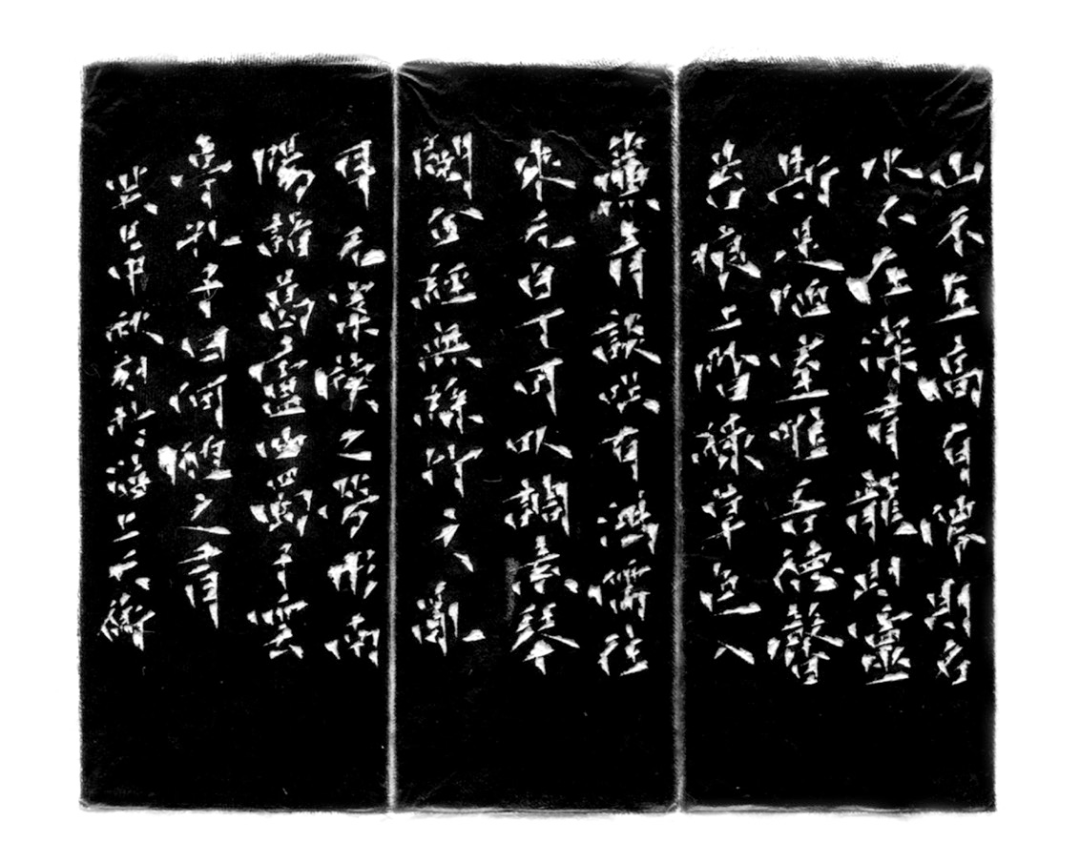 山不在高有僊則名
水不在深有龍則靈
斯是陋室唯吾德馨
苔痕上階綠草色入
簾青談咲有鴻儒往
來无白丁可㕥調素琴
閱金經無絲竹之亂
耳无案牘之勞形南
陽諸葛廬西蜀子雲
亭孔子曰何陋之有
癸巳中秋刻於海上天衡